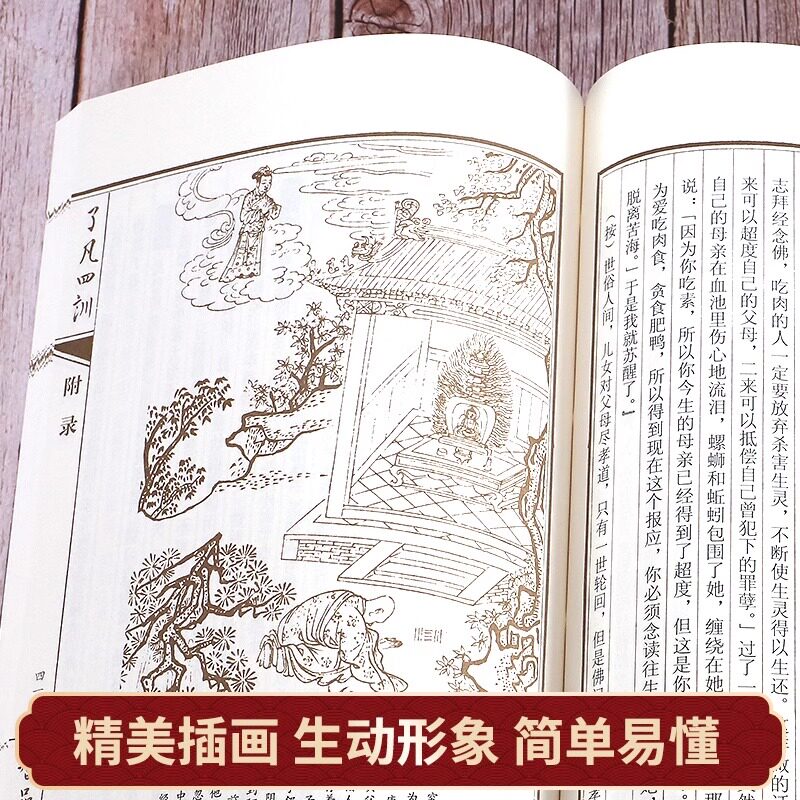 志拜经念佛，吃肉的人一定要放弃杀害生灵，不断使生灵得以生还。
来可以超度自己的父母，二来可以抵偿自己曾犯下的罪孽。」过了一
自己的母亲在血池里伤心地流泪，螺蛳和蚯蚓包围了她，缠绕在她
说：「因为你吃素，所以你今生的母亲已经得到了超度，但这是你
为爱吃肉食，贪食肥鸭，所以得到现在这个报应，你必须念读往生
脱离苦海。」于是我就苏醒了。』
（按）世俗人间，儿女对父母尽孝道，只有一世轮回，但是佛
了凡四训
附录
精美插画 生动形象 简单易懂